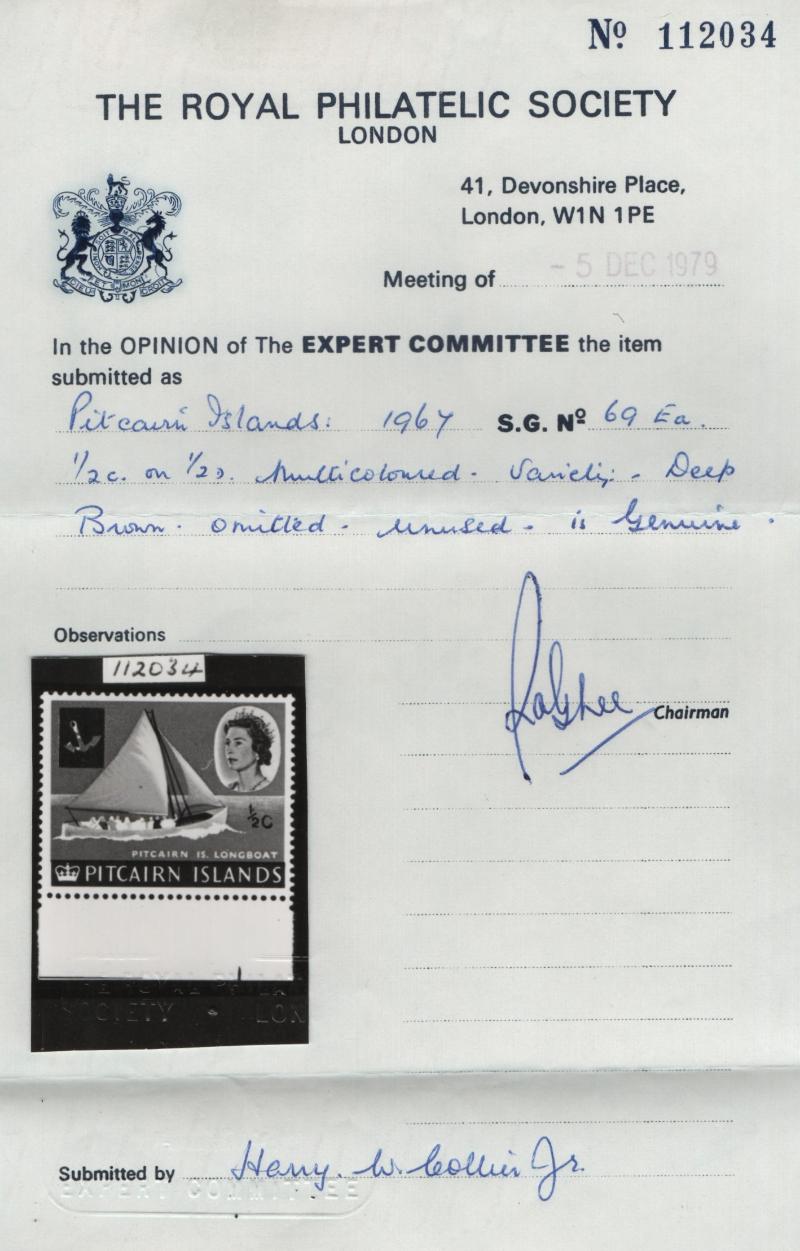 Nº 112034
THE ROYAL PHILATELIC SOCIETY
LONDON
41, Devonshire Place,
London, W1N 1PE
Meeting of - 5 DEC 1979
In the OPINION of The EXPERT COMMITTEE the item
submitted as
Pitcairn Islands: 1967 S.G. Nº 69 Ea.
1/2c. on 1/2d. Multicoloured - Variety: - Deep
Brown - omitted - unused - is Genuine.
Observations
112034
Chairman
½C
PITCAIRN IS. LONGBOAT
PITCAIRN ISLANDS
THE ROYAL PHILAT
SOCIETY - LON
Submitted by Harry. W. Collier Jr.
EXPERT COMMITTEE